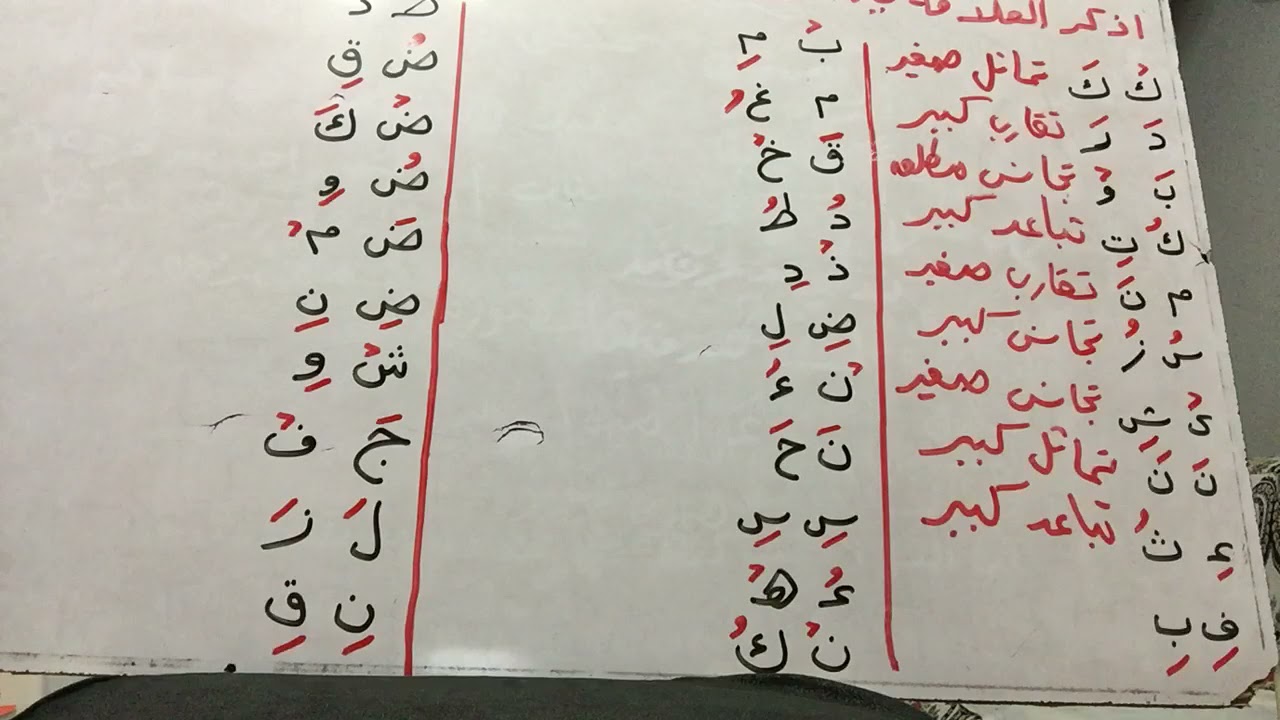 اذكر
كْ كَ تماثل صغير
دَ رَ تقارب كبير
بَ وْ تجانس مطلق
كُ تِ تباعد كبير
م نَ تقارب صغير
سُ زُ تجانس كبير
يْ شِ تجانس صغير
نَ نَ تماثل كبير
ءِ ثُ تباعد كبير
فِ بِ
بْ مِ
م غُ
قَ خْ
دُ طُ
ذْ دِ
ضِ لِ
نْ ءُ
نَ حَ
سِ سِ
ءُ هْ
نْ كُ
ضُ قِ
ضْ كَ
ضُ وِ
ضَ مْ
ضِ نِ
شْ وِ
جَ فْ
لَ رَ
نِ قِ